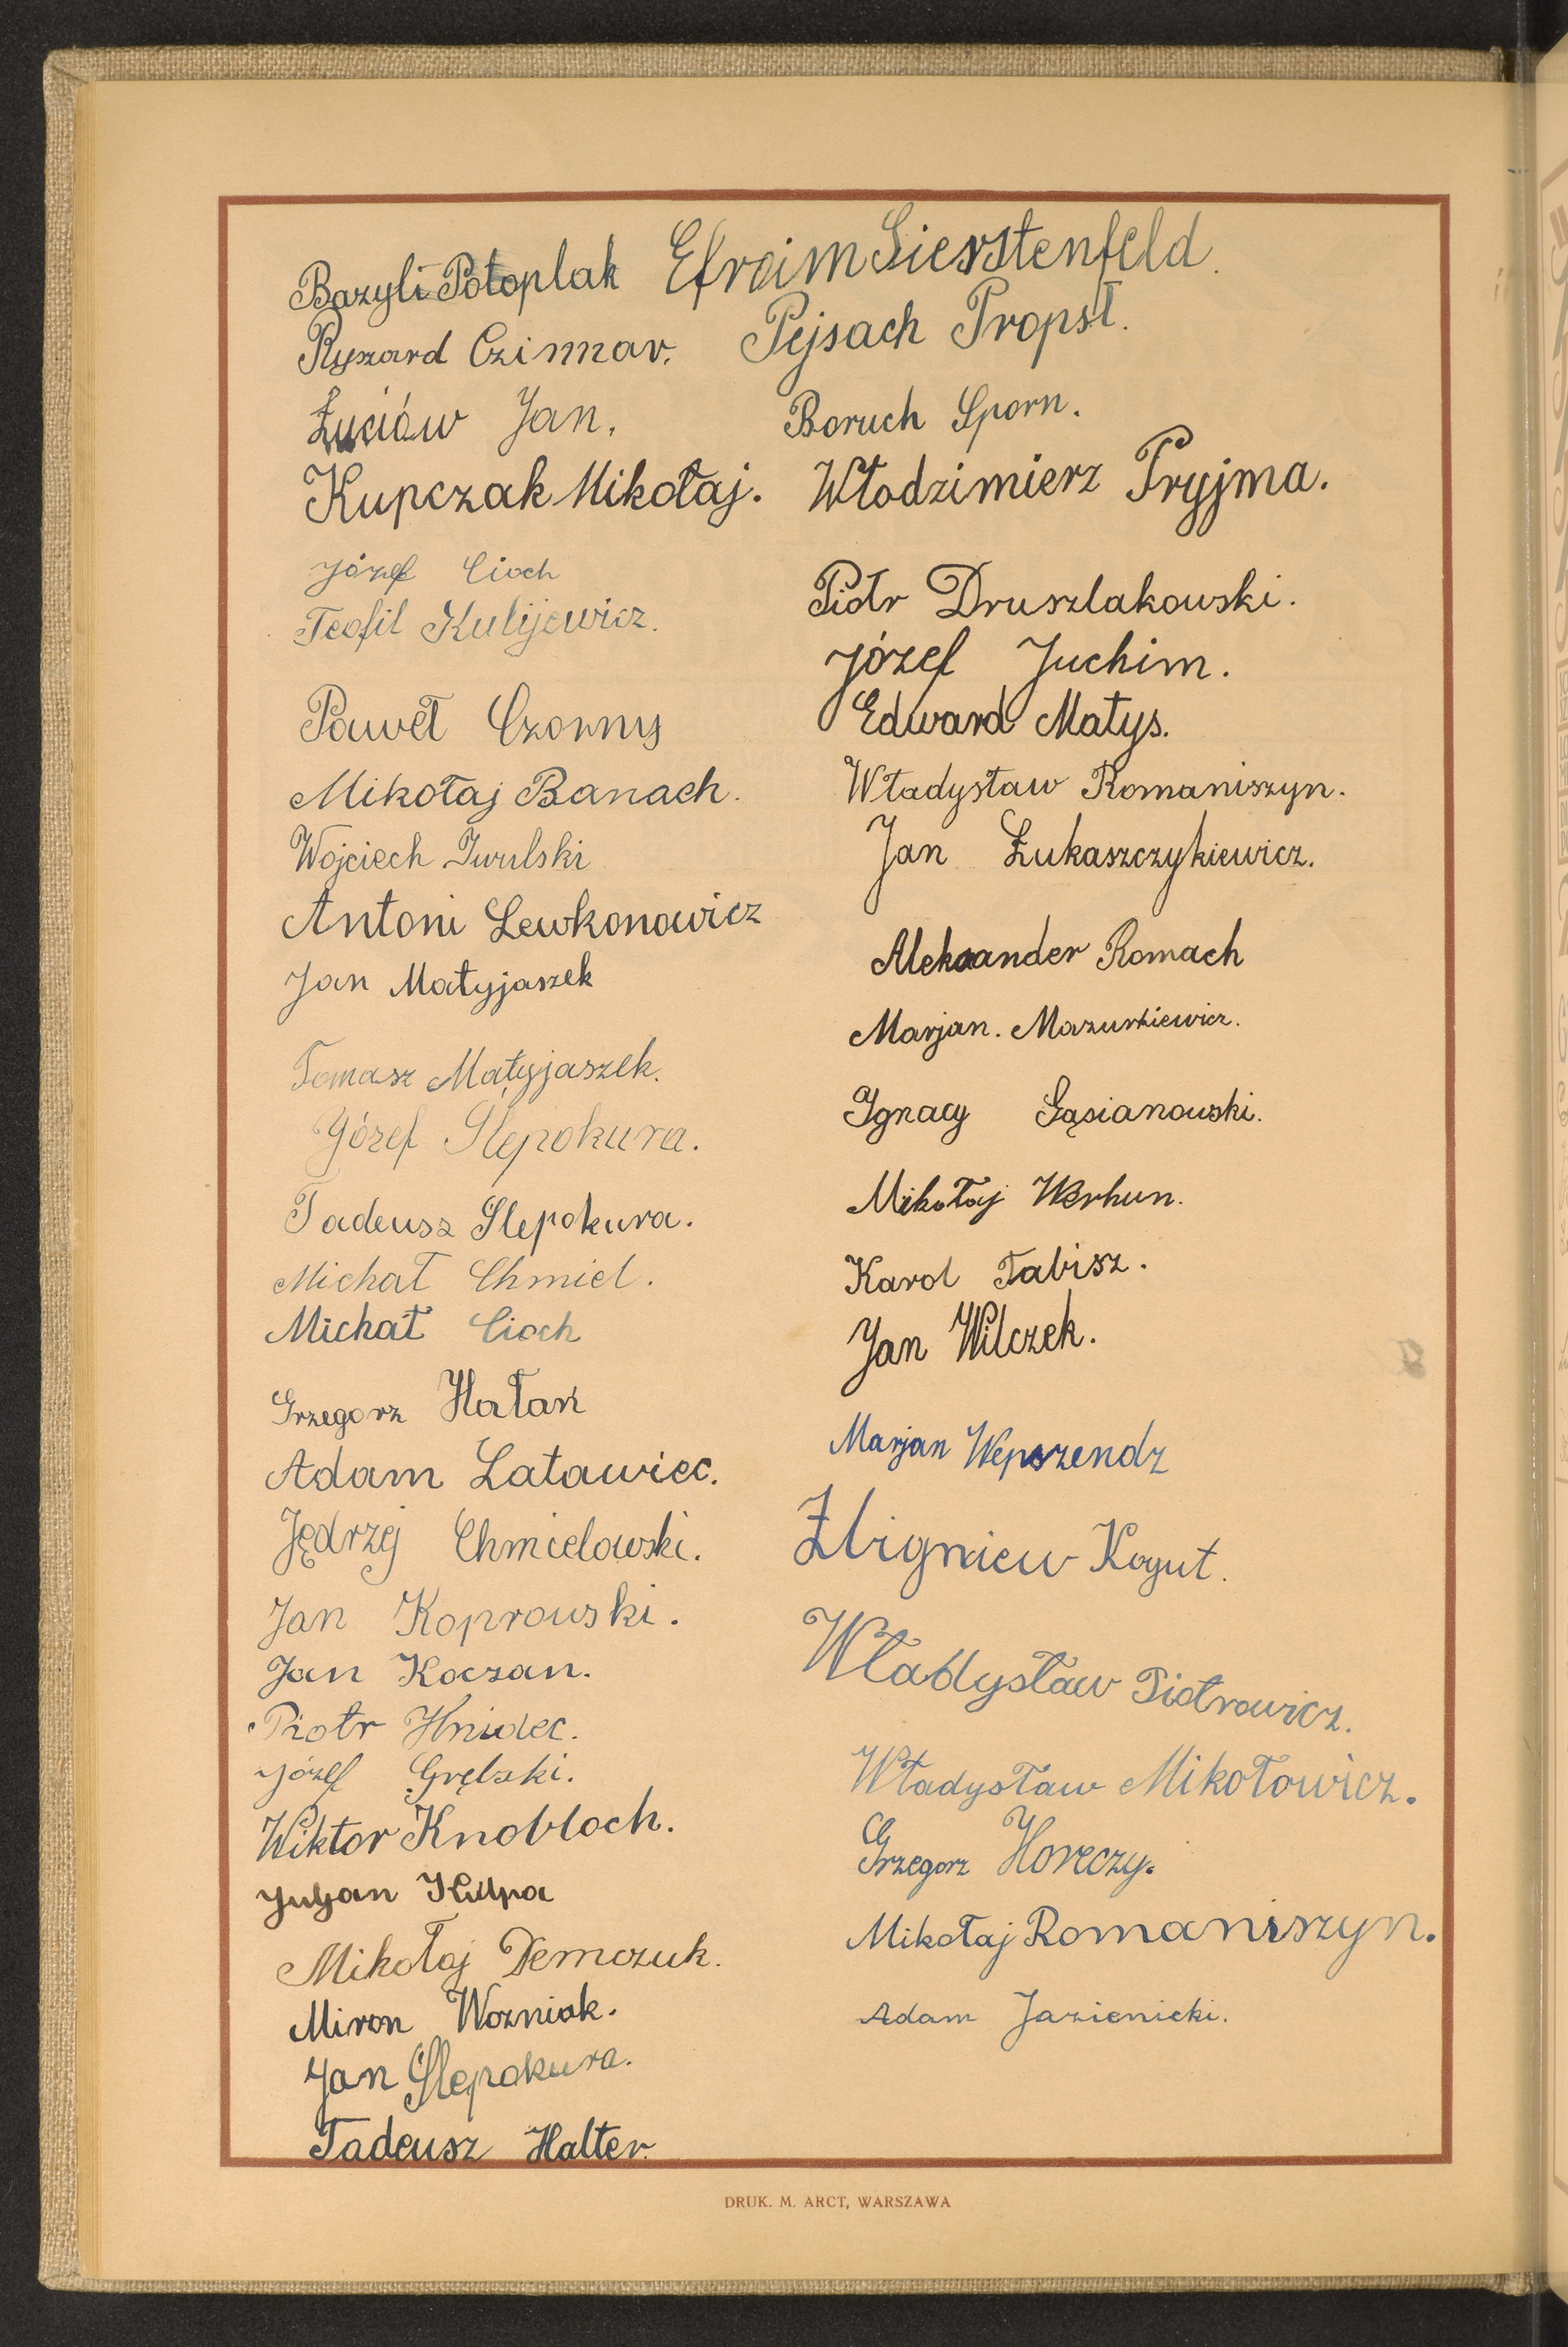 Bazyli Potoplak
Ryszard Czinnar.
Łuciów Jan.
Kupczak Mikołaj.
Józef Cioch
Teofil Kulijewicz.
Paweł Czorny
Mikołaj Banach.
Wojciech Iwulski
Antoni Lewkonowicz
Jan Matyjaszek
Tomasz Matyjaszek.
Józef Ślepokura.
Tadeusz Slepokura.
Michał Chmiel.
Michał Cioch
Grzegorz Hałan
Adam Latawiec.
Jędrzej Chmielowski.
Jan Koprowski.
Jan Koczan.
Piotr Hnidec.
Józef Grębski.
Wiktor Knobloch.
Juljan
Mikołaj Demczuk.
Miron Wozniak.
Jan Ślepokura.
Tadeusz Halter.
Efroim Sierstenfeld.
Pejsach Propst.
Boruch Sporn.
Włodzimierz Pryjma.
Piotr Druszlakowski.
Józef Juchim.
Edward Matys.
Władysław Romaniszyn.
Jan Łukaszczykiewicz.
Aleksander Romach
Marjan. Mazurkiewicz.
Ignacy Gąsianowski.
Mikołaj Werhun.
Karol Tabisz.
Jan Wilczek.
Marjan Wepszendz
Zbigniew Kogut.
Władysław Piotrowicz.
Władysław Mikołowicz.
Grzegorz Horeczy.
Mikołaj Romaniszyn.
Adam Jazienicki.
DRUK. M. ARCT, WARSZAWA